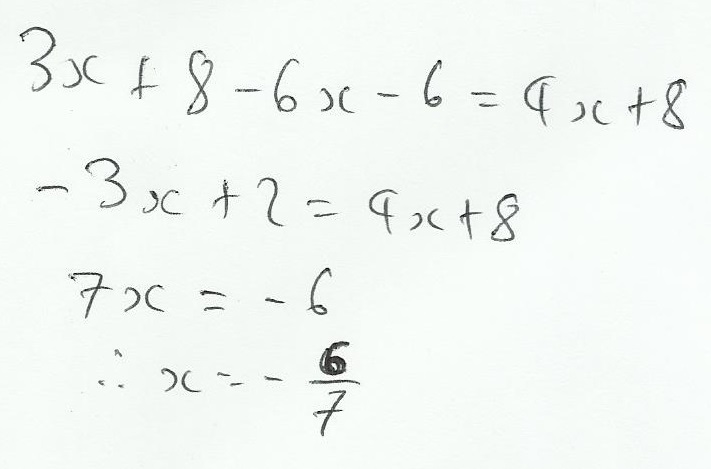 3x + 8 - 6x - 6 = 4x + 8
-3x + 2 = 4x + 8
7x = -6
∴ x = - 6/7